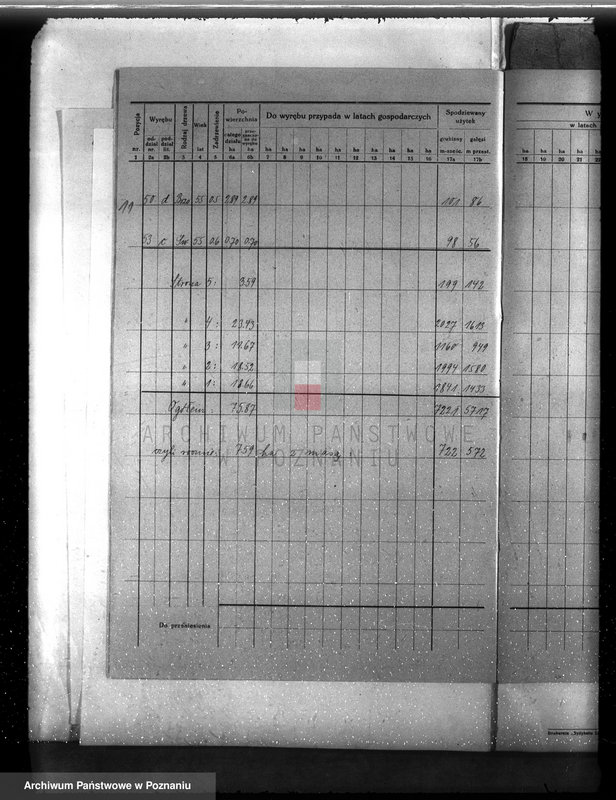 Pozycja
Wyrębu
Rodzaj drzewa
Wiek
Zadrzewienie
Powierzchnia
Do wyrębu przypada w latach gospodarczych
Spodziewany użytek
nr. oddział nr. pododdział lit. lat całego działu ha ha ha ha ha ha ha ha ha ha ha ha grubizny m-sześc. gałęzi m przest.
1 2a 2b 3 4 5 6a 6b 7 8 9 10 11 12 13 14 15 16 17a 17b
11 50 d 55 05 2.89 2.89 101 86
53 c 55 06 0.70 0.70 98 56
Strona 5: 3.59 199 142
" 4: 23.43 2027 1613
" 3: 11.67 1160 949
" 2: 18.52 1994 1580
" 1: 18.66 1841 1433
Ogółem: 75.87 7221 5717
czyli rocznie: 7.59 ha z masą: 722 572
Do przeniesienia
W y
w latach
ha ha ha ha ha
18 19 20 21 22
ARCHIWUM PAŃSTWOWE
W POZNANIU
Drukarnia „Dziennika
Archiwum Państwowe w Poznaniu